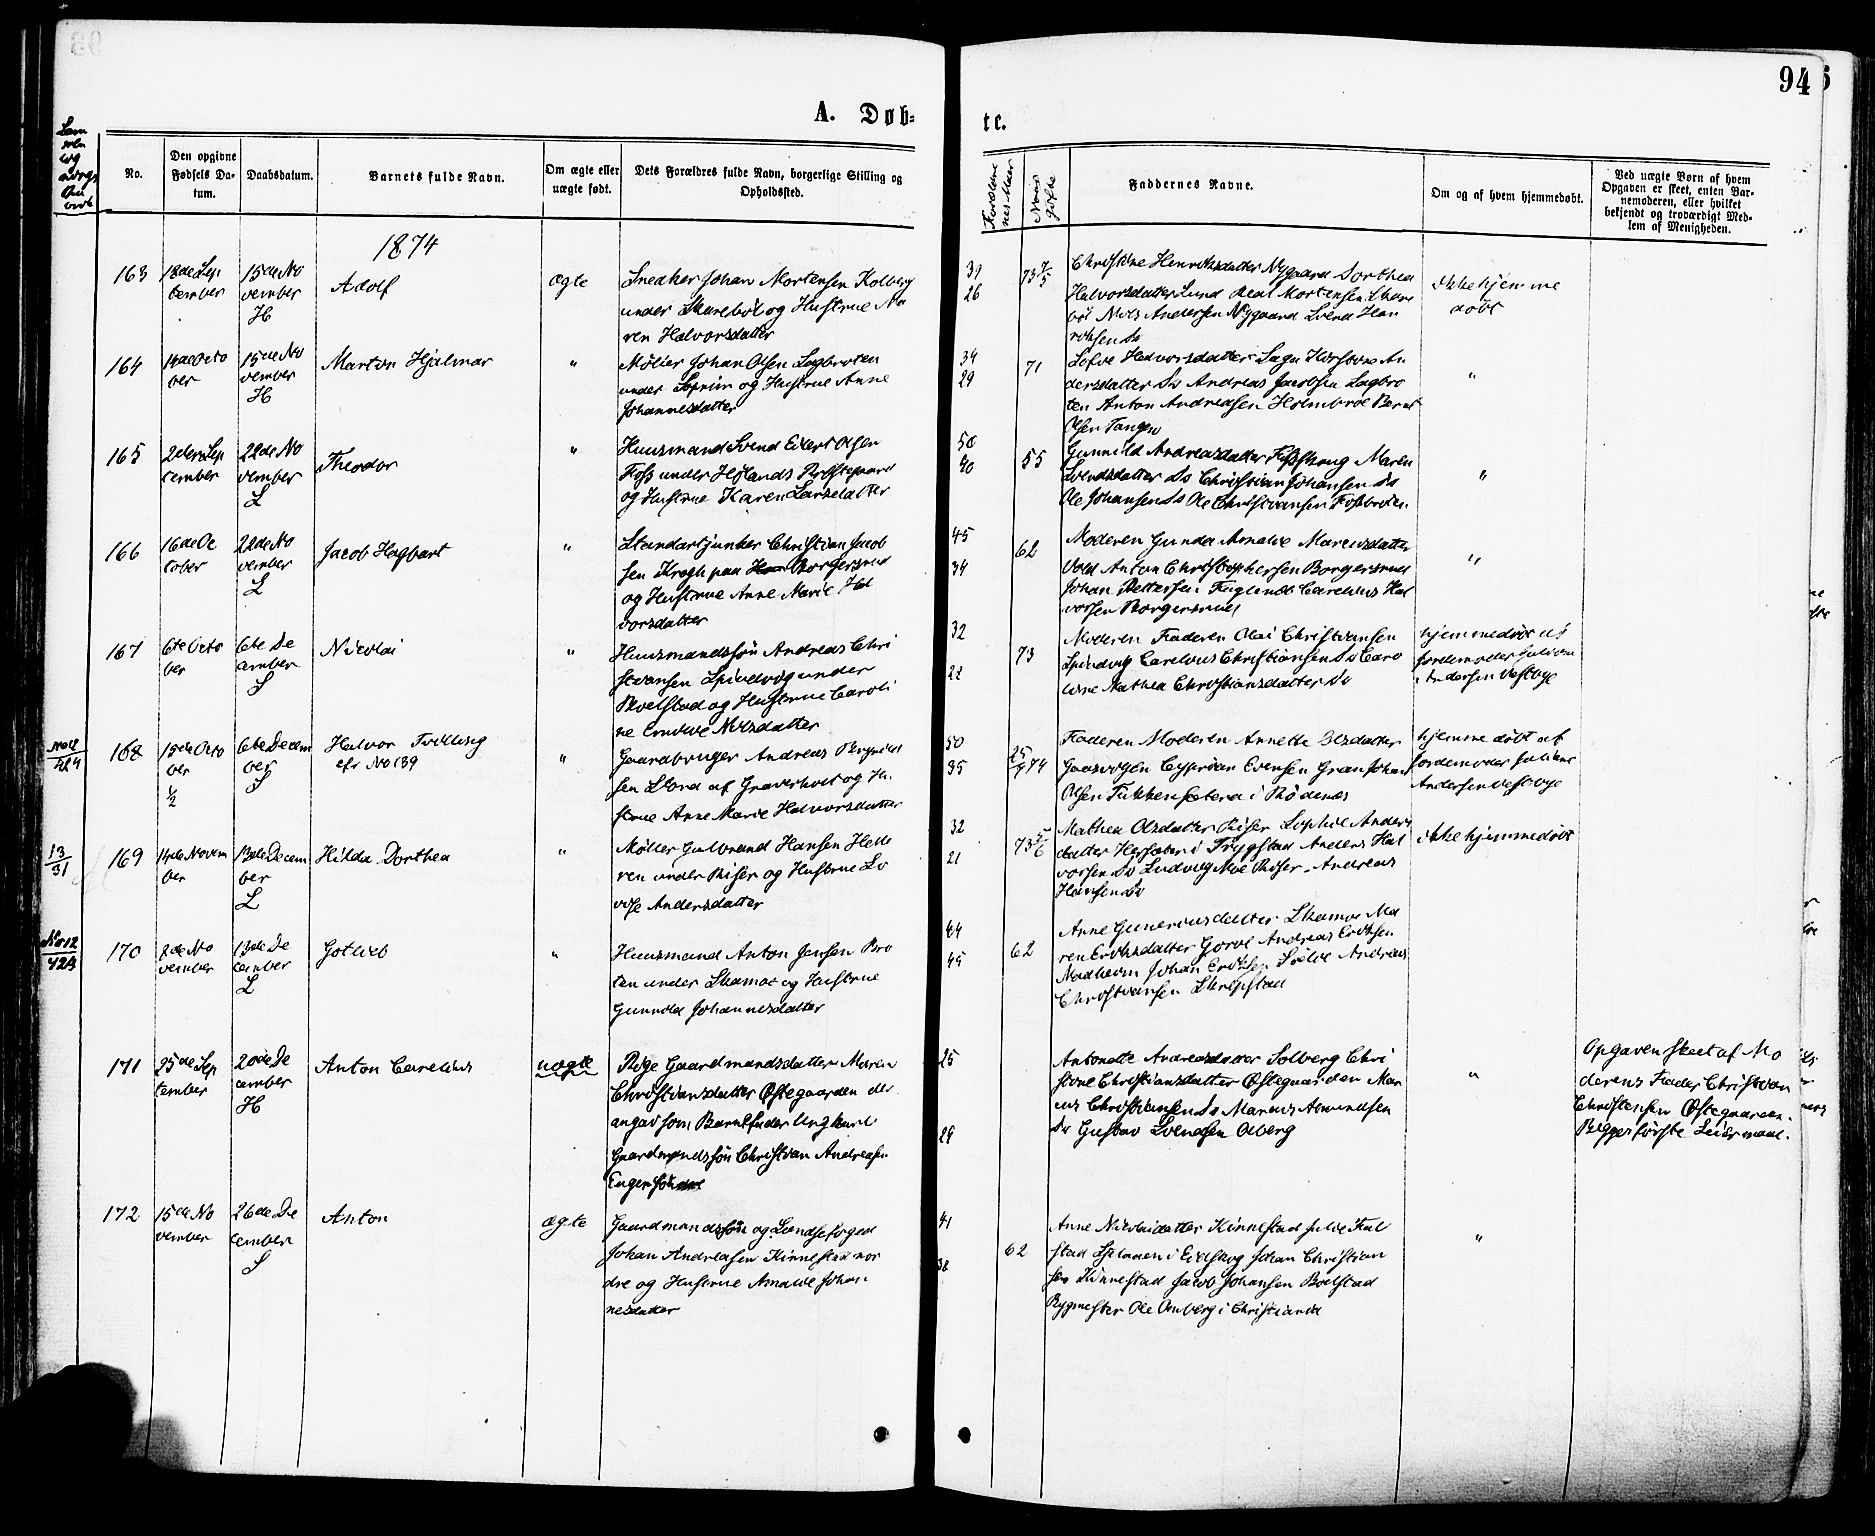 94
A. Døb-
te.
No.
Den opgivne
Fødsels Da-
tum.
Daabsdatum.
Barnets fulde Navn.
Om ægte eller
uægte født.
Dets Forældres fulde Navn, borgerlige Stilling og
Opholdssted.
Faddernes Navne.
Om og af hvem hjemmedøbt.
Ved uægte Børn af hvem
Opgaven er skeet, enten Bar-
nemoderen, eller hvilket
bekjendt og troværdigt Med-
lem af Menigheden.
1874
163
18de Sep
tember
15de No
vember
H
Adolf
ægte
Snedker Johan Mortensen Kolberg
under Skarebøl og Hustrue Ma
ren Halvorsdatter
31
26
73 7/5
Christine Henriksdatter Nygaard Dorthea
Halvorsdatter Lund
Andersen Nygaard Svend Hen
riksen Do
ikke hjemme
døbt
164
14de Octo
ber
15de No
vember
H
Martin Hjalmar
"
Møller Johan Olsen Sagbroten
under og Hustrue Anne
Johannesdatter
34
29
71
Halvorsdatter An
dersdatter Do Andreas Jacobsen Sagbro
ten Anton Andreasen Holmbroe Bernt
Olsen Tangen
"
165
2den Sep
tember
22de No
vember
L
Theodor
"
Huusmand Svend Eilert Olsen
Foss under Hølands Præstegaard
og Hustrue Karen Larsdatter
50
40
55
Gunnild Andreasdatter Maren
Svendsdatter Do Christian Johansen Do
Ole Johansen Do Ole Christiansen Fossbroten
"
166
16de Oc
tober
22de No
vember
L
Jacob Hagbart
"
Standartjunker Christian Jacob
sen Krogh paa Borgersrud
og Hustrue Anne Marie Hal
vorsdatter
45
34
62
Moderen Gunda Amalie Mariusdatter
Vold Anton Christophersen Borgersrud
Johan Pettersen Carelius Hal
vorsen Borgersrud
"
167
6te Octo
ber
6te De
cember
S
Nicolai
"
Huusmandssøn Andreas Chri
stiansen Spindvig under
Bvelstad og Hustrue Caroli
ne Emilie Nilsdatter
32
22
73
Moderen Faderen Olai Christiansen
Spindvig Carelius Christiansen Do Caro
line Mathea Christiansdatter Do
hjemmedøbt af
Jordemoder
Andersen Vestbye
168
15de Octo
ber
1/2
6te Decem
ber
S
Halvor Tvilling
cfr No 139
"
Gaardbruger Andreas Brynild
sen af Graverholt og Hu
strue Anne Marie Halvorsdatter
50
35
25/9 74
Faderen Moderen Annette Olsdatter
Cyprian Evensen Gran Johan
Olsen i Rødenæs
hjemmedøbt af
Jordemoder
Andersen Vestbye
13
31
169
14de Novem
ber
13de Decem
ber
L
Hilda Dorthea
"
Møller Gulbrand Hansen Helle
ren under Riser og Hustrue Lo
vise Andersdatter
32
21
73 5/6
Mathea Olsdatter Riser Sophie Anders
datter i Trygstad Anders Hal
vorsen Do Ludvig Moe Riser Andreas
Hansen Do
ikke hjemmedøbt
No 12
424
170
2de No
vember
13de De
cember
L
Gotlieb
"
Huusmand Anton Jensen Bro
ten under Skamar og Hustrue
Gunnild Johannesdatter
44
45
62
Anne Gunerius datter Skamar Ma
ren Eriksdatter Andreas Eriksen
Johan Eriksen Andreas
Christiansen Skripstad
171
25de Sep
tember
20de De
cember
H
Anton Carelius
uægte
Pige Gaardmandsdatter Maren
Christiansdatter Østegaarden der
angav som Barnefader Ungkarl
Gaardmandssøn Christian Andreasen
Enger
25
29
Antonette Andreasdatter Solberg Chri
stine Christiansdatter Østegaarden Mar
ius Christiansen Do Marius Amundsen
Do Gustav Svendsen Aaberg
"
Opgaven skeet af Mo
derens Fader Christian
Christensen Østegaarden.
Begges første Leiermaal.
172
15de No
vember
26de De
cember
S
Anton
ægte
Gaardmandssøn og Landsefoged
Johan Andreasen Kinnestad nor
dre og Hustrue Amalie Johan
nesdatter
41
38
62
Anne Nicolaidatter Kinnestad
i Eidskog Johan Christian
sen Kinnestad Jacob Johansen Bvelstad
Bygmester Ole Omberg i Christiania
"